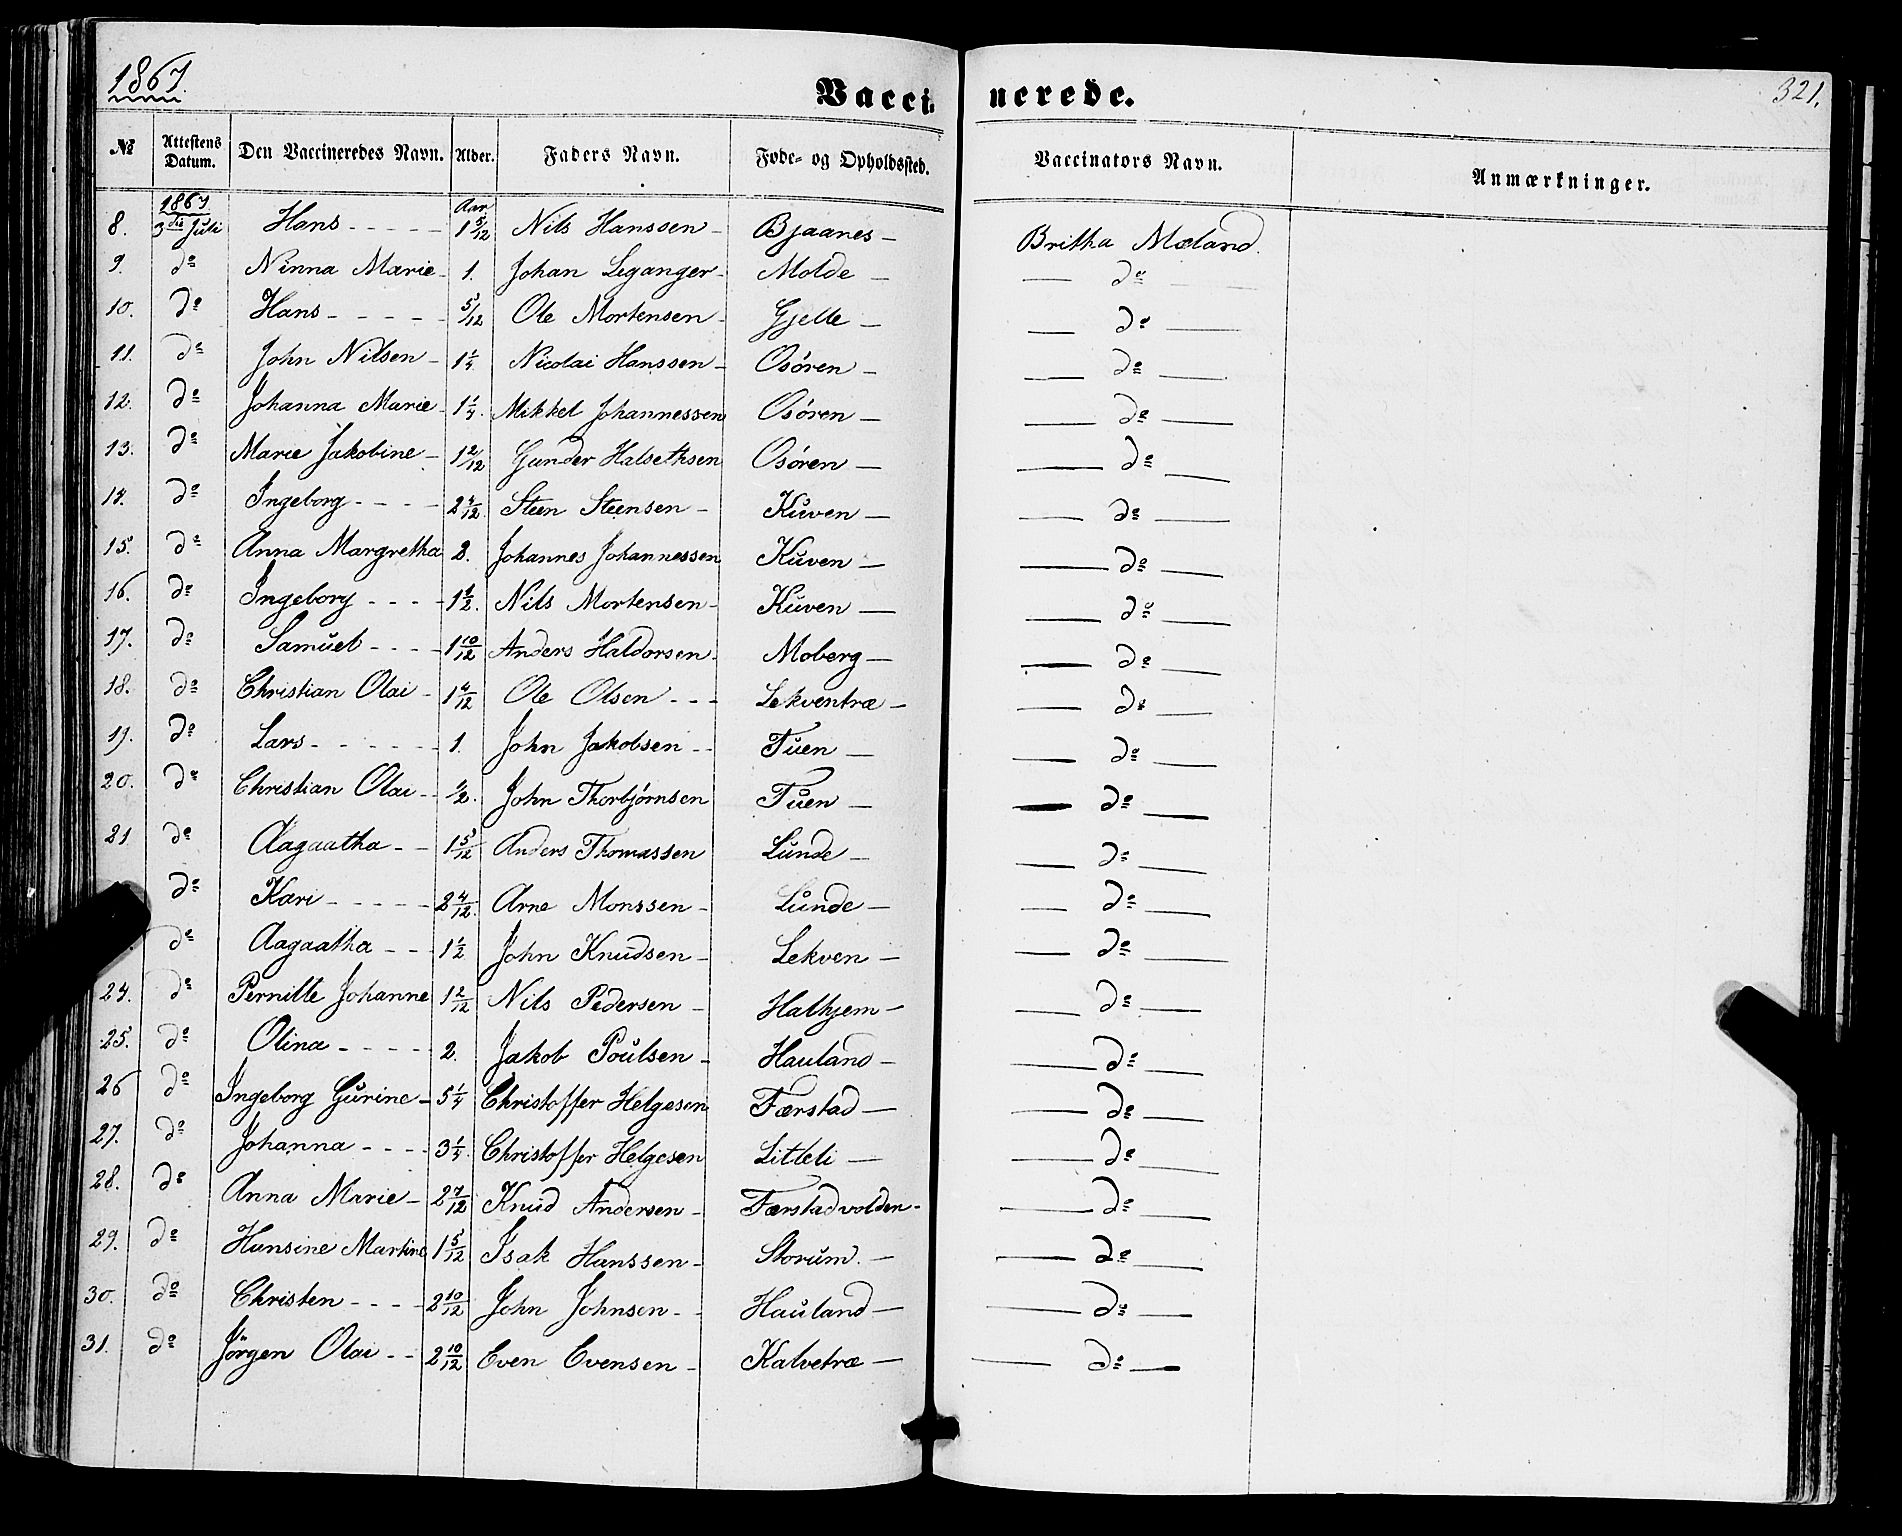 1867.
321.
Vaccinerede.
№ | Attestens Datum. | Den Vaccineredes Navn. | Alder. | Faders Navn. | Føde- og Opholdssted. | Vaccinators Navn. | Anmærkninger.
8. | 1867 3die Juli | Hans | Aar 1 5/12 | Nils Hanssen | Bjaanes | Britha Mæland.
9. | do | Ninna Marie | 1. | Johan Leganger | Molde | do
10. | do | Hans | 5/12 | Ole Mortensen | Gjelle | do
11. | do | John Nilsen | 1 1/4 | Nicolai Hanssen | Osören | do
12. | do | Johanna Marie | 1 1/4. | Mikkel Johannessen | Osören | do
13. | do | Marie Jakobine | 1 2/12 | Gunder Halsethsen | Osören | do
14. | do | Ingeborg | 2 4/12. | Steen Steensen | Kuven | do
15. | do | Anna Margretha | 2. | Johannes Johannessen | Kuven | do
16. | do | Ingeborg | 1 1/2. | Nils Mortensen | Kuven | do
17. | do | Samuel | 1 10/12 | Anders Haldorsen | Moberg | do
18. | do | Christian Olai | 1 4/12 | Ole Olsen | Lekventræ | do
19. | do | Lars | 1. | John Jakobsen | Tuen | do
20. | do | Christian Olai | 1/2. | John Thorbjörnsen | Tuen | do
21 | do | Aagaatha | 1 5/12 | Anders Thomassen | Lunde | do
do | Kari | 2 4/12. | Arne Monssen | Lunde | do
do | Aagaatha | 1 1/2 | John Knudsen | Lekven | do
24. | do | Pernille Johanne | 1 2/12 | Nils Pedersen | Hathjem | do
25. | do | Olina | 2. | Jakob Poulsen | Hauland | do
26 | do | Ingeborg Gurine | 5 1/4 | Christoffer Helgesen | Færstad | do
27. | do | Johanna | 3 1/4. | Christoffer Helgesen | Litleli | do
28. | do | Anna Marie | 2 7/12 | Knud Andersen | Færstadvolden | do
29. | do | Hansine Martine | 1 5/12 | Isak Hanssen | Storum. | do
30. | do | Christen | 2 10/12 | John Johnsen | Hauland | do
31. | do | Jörgen Olai | 2 10/12 | Even Evensen | Kalvetræ | do